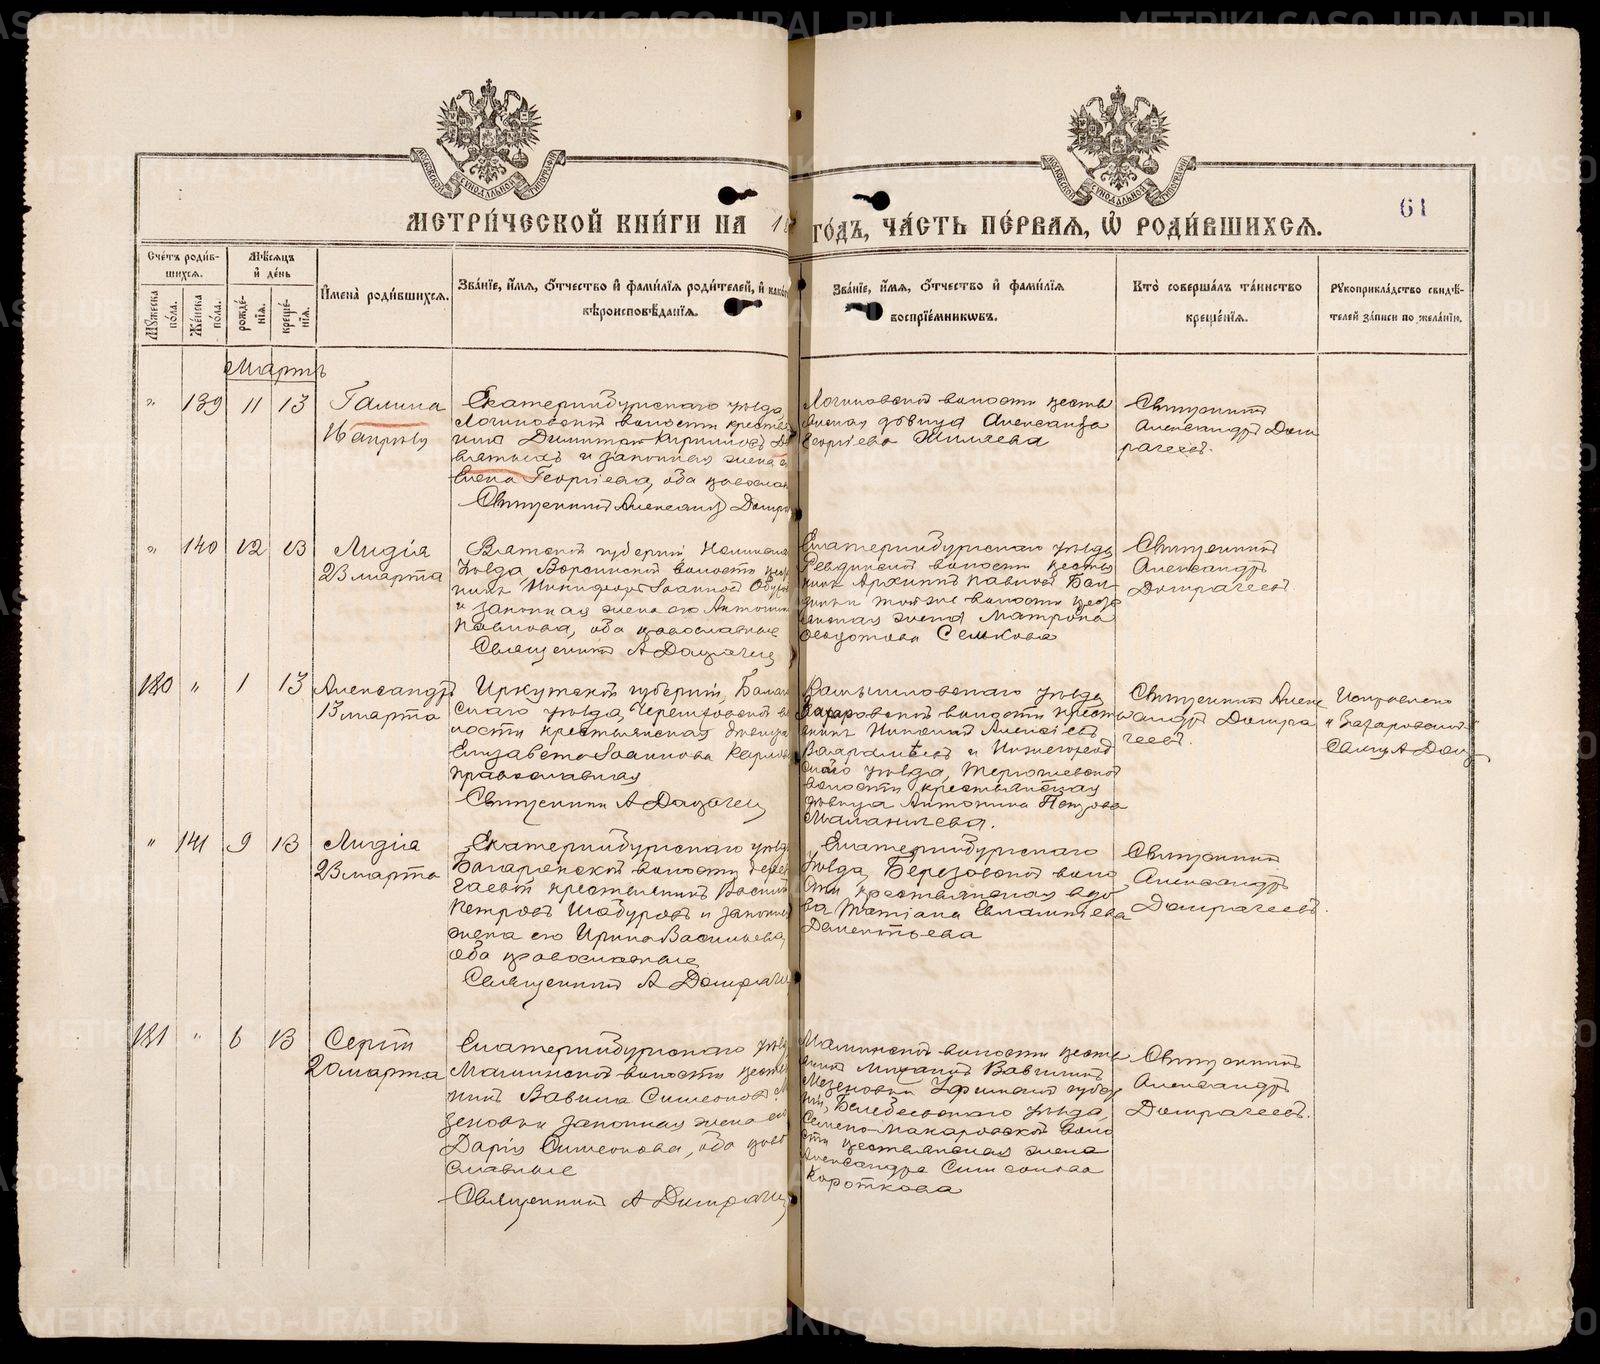 МЕТРИ́ЧЕСКОЙ КНИ́ГИ НА 18
ГО́ДЪ, ЧА́СТЬ ПЕ́РВАЯ, Ѡ҆ РОДИ́ВШИХСЯ.
61
Сче́тъ роди́в-
шихся.
Мꙋ́жеска по́ла.
Же́нска по́ла.
Мѣ́сяцъ
и҆ де́нь
рожде́-
нїя.
креще́-
нїя.
И҆мена̀ роди́вшихся.
Зва́нїе, и҆́мя, ѻ҆́тчество и҆ фами́лїя роди́телей, и҆ како́
вѣроисповѣ́данїя.
Зва́нїе, и҆́мя, ѻ҆́тчество и҆ фами́лїя
воспрїе́мникѡвъ.
Кто̀ соверша́лъ та́инство
креще́нїя.
Рꙋкоприкла́дство свидѣ́-
телей за́писи по жела́нїю.
Мартъ
" 139 11 13
Галина
16 апрѣля
Екатеринбургскаго уѣзда,
Логиновской волости крестья
нинъ Димитрій Кирилловъ
и законная жена
Елена Георгіева, оба православ
Священникъ Александръ Домра
Логиновской волости кресть
янская дѣвица Александра
Георгіева Жиляева
Священникъ
Александръ Дом
рачеевъ.
" 140 12 13
Лидія
23 марта
Вятской губерніи
уѣзда волости крес
нинъ Никифоръ Іоанновъ
и законная жена его Антонин
Павлова, оба православные
Священникъ А Домрачеев
Екатеринбургскаго уѣзда
Ревдинской волости кресть
нинъ Архиппъ Павловъ
той же волости крест
янская жена Матрона
Семкова
Священникъ
Александръ
Домрачеевъ.
180 " 1 13
Александръ
13 марта
Иркутской губерніи, Балаган
скаго уѣзда, Черемховской во
лости крестьянская дѣвица
Елизавета Іоаннова Карпов
православная
Священникъ А Домрачеев
Камышловскаго уѣзда
волости кресть
нинъ Николай Алексѣевъ
Варалмѣевъ и Нижегород
скаго уѣзда, Терюшевской
волости крестьянская
дѣвица Антонина Петрова
Маланичева.
Священникъ Алекс
андръ Домра
чеевъ.
Исправлено
Свящ А Дом
" 141 9 13
Лидія
23 марта
Екатеринбургскаго уѣзда
Багарякской волости дерев
гаевой крестьянинъ Василій
Петровъ Шабуровъ и законная
жена его Ирина Васильева,
оба православные
Священникъ А Домрачеев
Екатеринбургскаго
уѣзда, Березовской воло
сти крестьянская вдо
ва Татіана Евлампіева
Дементьева
Священникъ
Александръ
Домрачеевъ.
181 " 6 13
Сергій
20 марта
Екатеринбургскаго уѣзда
Маминской волости кресть
нинъ Вавила Симеоновъ М
зеновъ и законная жена его
Дарія Симеонова, оба право
славные
Священникъ А Домрачеев
Маминской волости кресть
янинъ Михаилъ Вавилинъ
Мезеновъ и Уфимской губер
ніи, Белебеевскаго уѣзда,
Семено-Макаровской воло
сти крестьянская жена
Александра Симеонова
Короткова
Священникъ
Александръ
Домрачеевъ.
METRIKI.GASO-URAL.RU